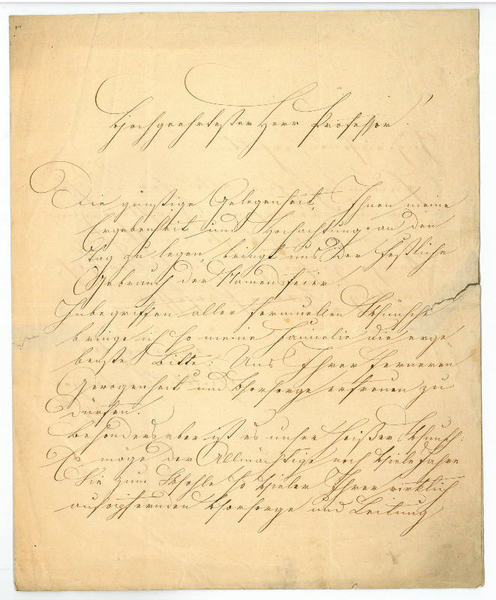 Hochgeehrtester Herr Professor!
Die günstige Gelegenheit, Ihnen meine
Ergebenheit und Hochachtung an den
Tag zu legen, bringt uns der festliche
Gebrauch der Namensfeier.
Inbegriffen aller formellen Wünsche
bringe ich so meine Familie die erge
benste Bitte: Uns Ihrer ferneren
Gewogenheit und Vorsorge erfreuen zu
dürfen.
Besonders aber ist es unser heißer Wunsch:
Es möge der Allmächtige noch viele Jahre
Sie zum Wohle so vieler Ihrer wirklich
aufopfernden Vorsorge und Leitung